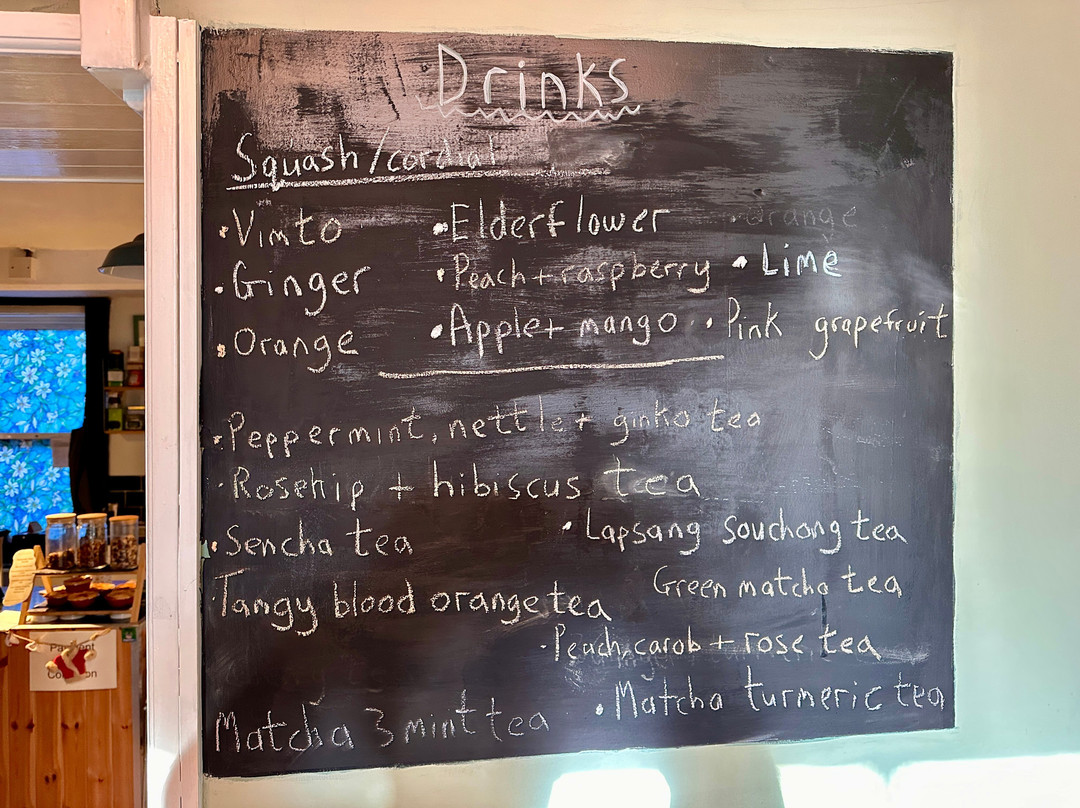 Drinks
Squash/cordial
• Vimto • Elderflower • orange
• Ginger • Peach + raspberry • Lime
• Orange • Apple + mango • Pink grapefruit
• Peppermint, nettle + ginko tea
• Rosehip + hibiscus tea
• Sencha tea • Lapsang Souchong tea
Tangy blood orange tea Green matcha tea
• Peach, carob + rose tea
Matcha 3 mint tea • Matcha turmeric tea